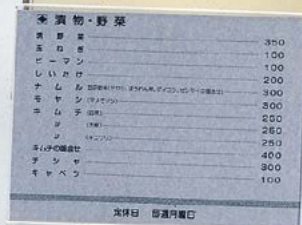 漬物・野菜
漬野菜 350
玉ねぎ 100
ピーマン 100
しいたけ 200
ナムル 300
モヤシ 300
キムチ (白菜) 250
〃 (大根) 250
〃 (キュウリ) 250
キムチの盛合せ 400
チシャ 300
キャベツ 100
定休日 毎週月曜日